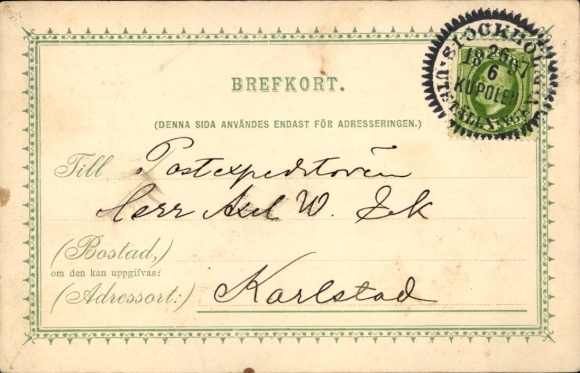 STOCKHOLM
UTSTÄLLNINGEN
26
18 97
6
KUPOLEN
BREFKORT.
(DENNA SIDA ANVÄNDES ENDAST FÖR ADRESSERINGEN.)
Till Postexpeditören
Herr Axel W. Ek
(Bostad,)
om den kan uppgifvas:
(Adressort:) Karlstad